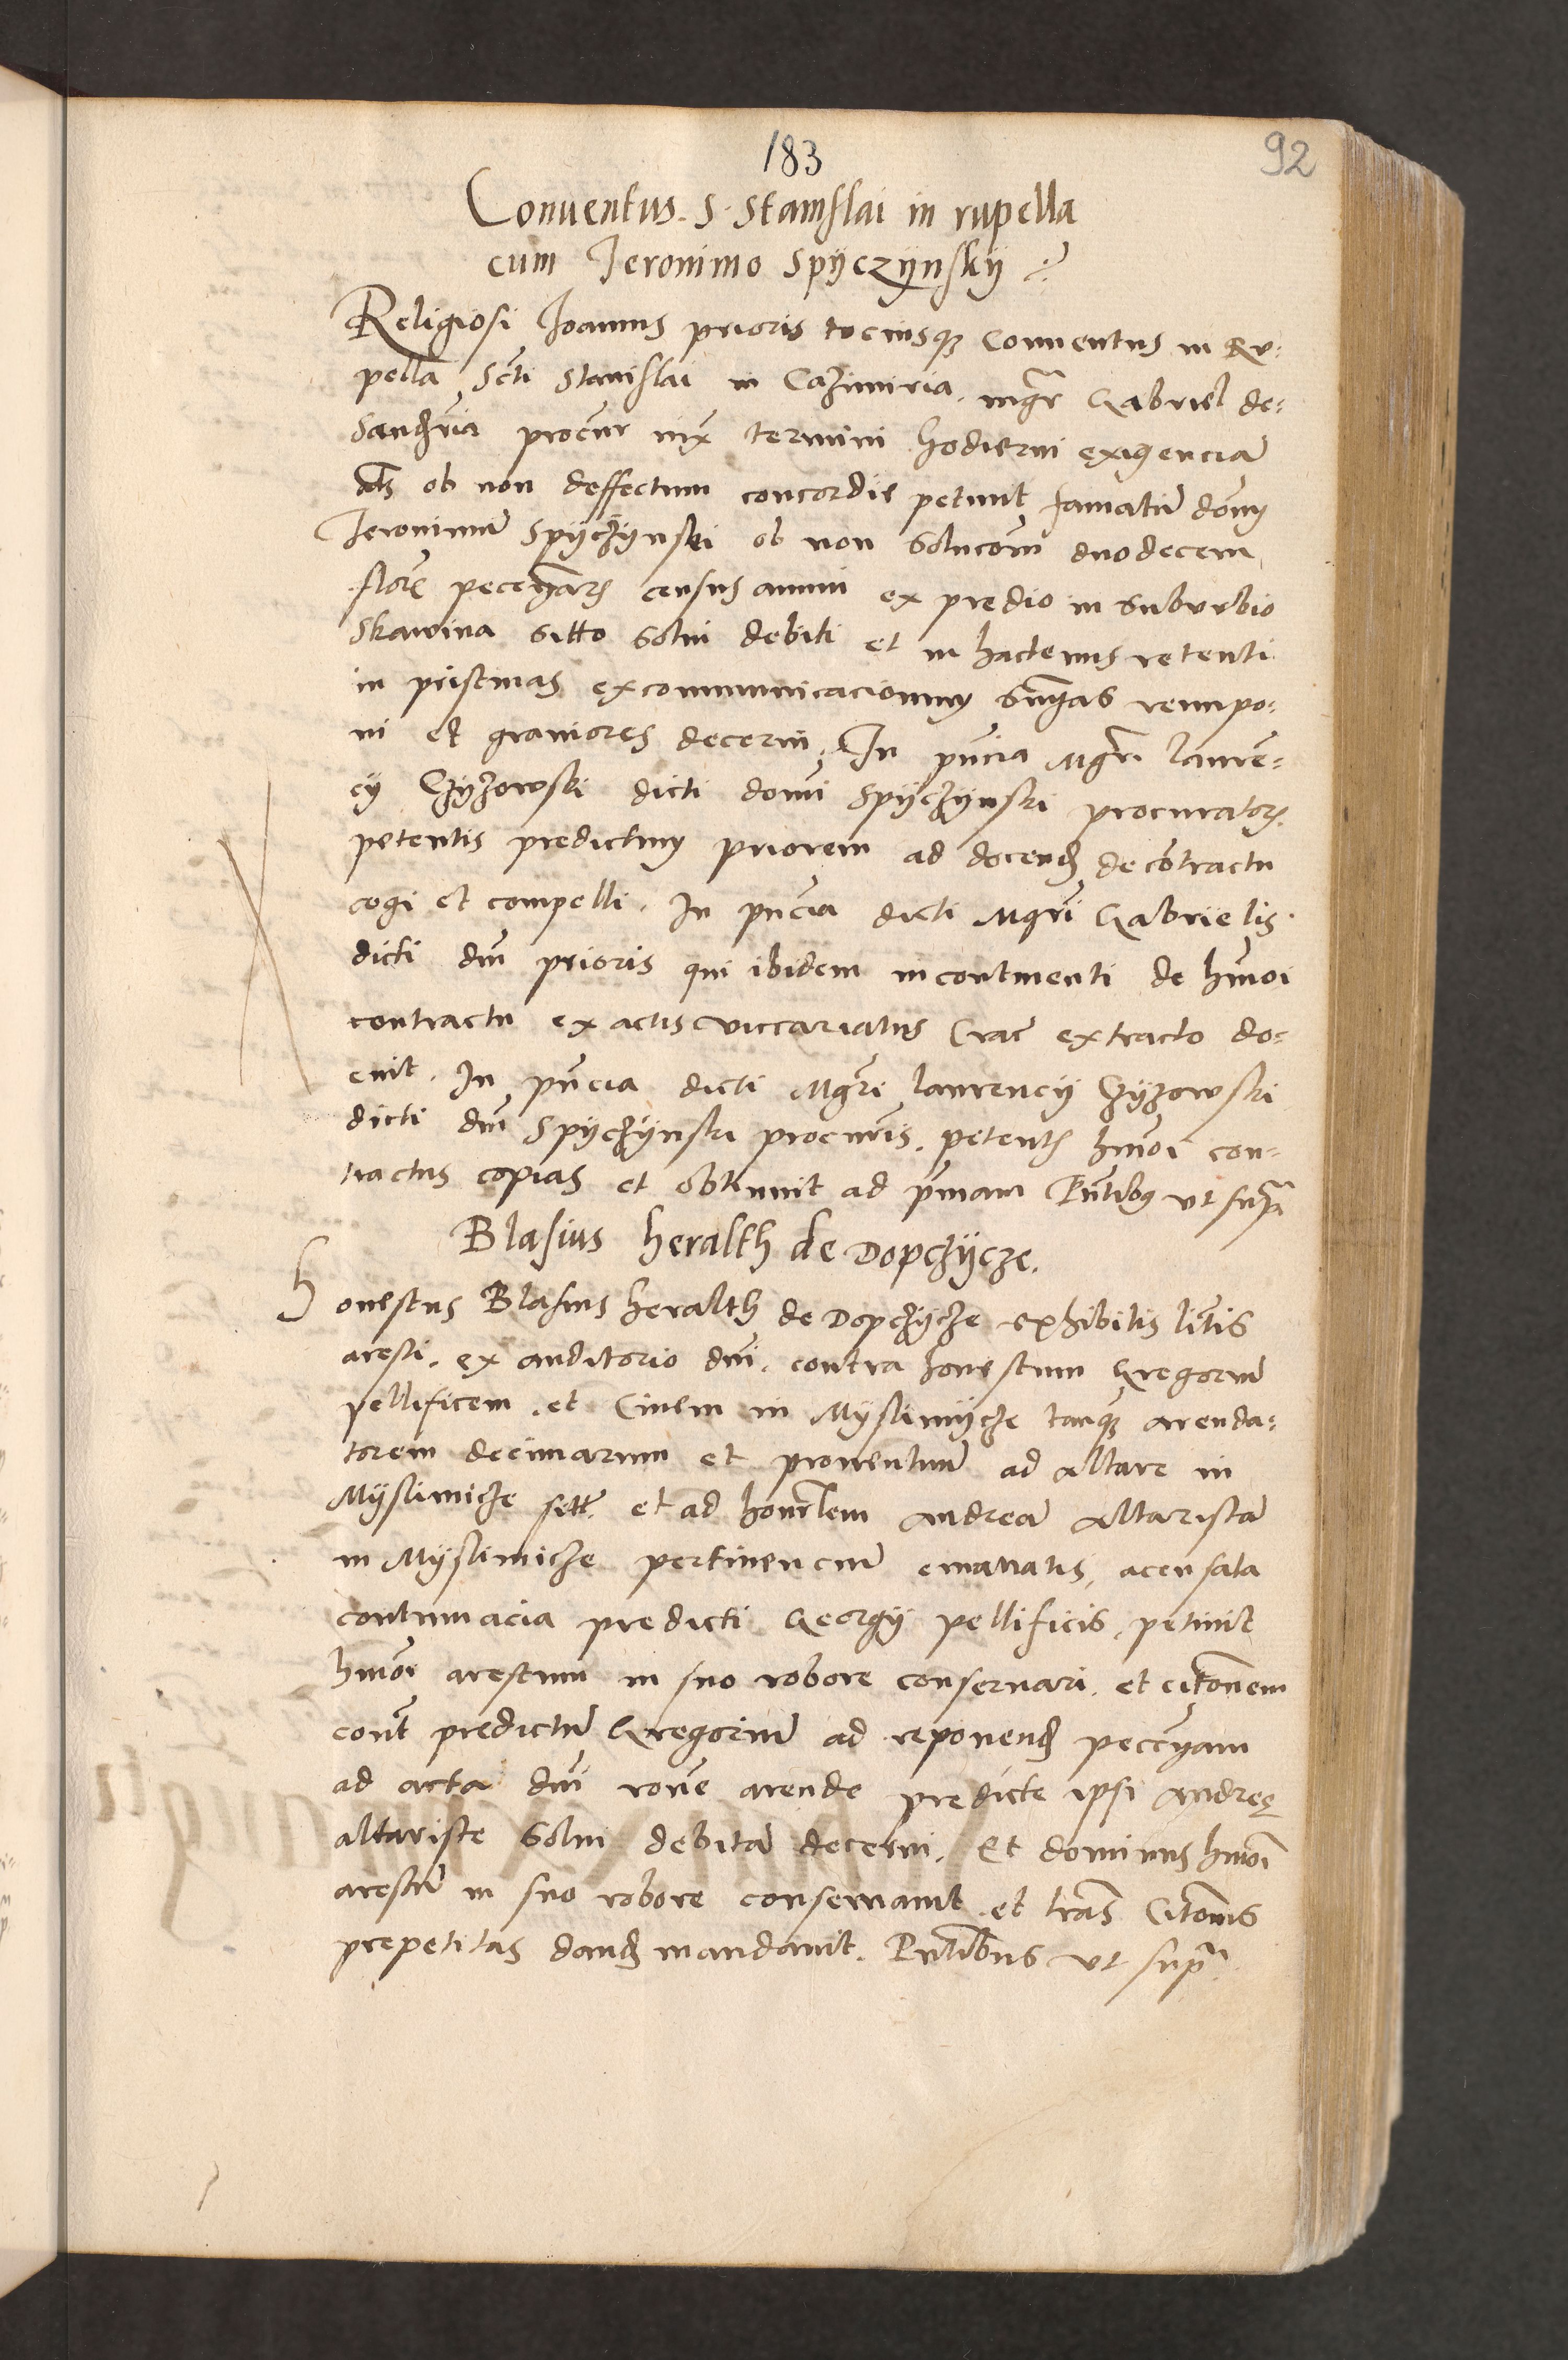 183
92
Conuentus S. Stanislai in rupella
cum Jeronimo Spÿczÿnskÿ
Religiosi Joannis prioris tociusq; Conuentus in Ru-
pella Scti Stanislai in Cazimiria. mgr Gabriel de-
Sandzia procur iux termini hodierni exigencia
ats ob non deffectum concordie petiuit famatu dom
Jeronimu Spÿczÿnski ob non solucom duodecem
flor census annui ex predio in suburbio
Skawina sitto solui debiti et in hactenus retenti
in pristinas excommunicacionum snias reimpo-
ni et grauiores decerni. In pncia Mgri lauren-
cÿ Czÿzowski dicti domi Spÿczÿnski procurator
petentis predictum priorem ad docend de contractu
cogi et compelli. In pncia dicti Mgri Gabrielis
dicti dni prioris qui ibidem incontinenti de hmoi
contractu ex actis viccariatus Crac extracto do-
cuit. In pncia dicti Mgri laurencÿ Czÿzowski
dicti dni Spÿczÿnski procuris. petent hmoi con-
tractus copias et obtinuit ad pmam Pntibus vt supra
Blasius heralth de Dopczÿcze.
Honestus Blasius heralth de Dopczÿcze exhibitis litris
aresti. ex auditorio dni. contra honestum Gregoriu
pellificem et Ciuem in Mÿslimÿcze tanq; arenda-
torem decimarum et prouentuu ad altare in
Mÿslimicze sitt. et ad honrlem Andrea altarista
in Mÿslimicze pertinenciu emanatis, acusata
contumacia predicti Georgÿ pellificis, petiuit
hmoi arestum in suo robore conseruari. et citonem
cont predictu Gregoriu ad reponend peccyam
ad acta dni rone arende predicte ipsi Andree
altariste solui debita decerni. Et dominus hmoi
arestu in suo robore conseruauit. et tras Citonis
prepetitas dand mandauit. Pntibus vt supra